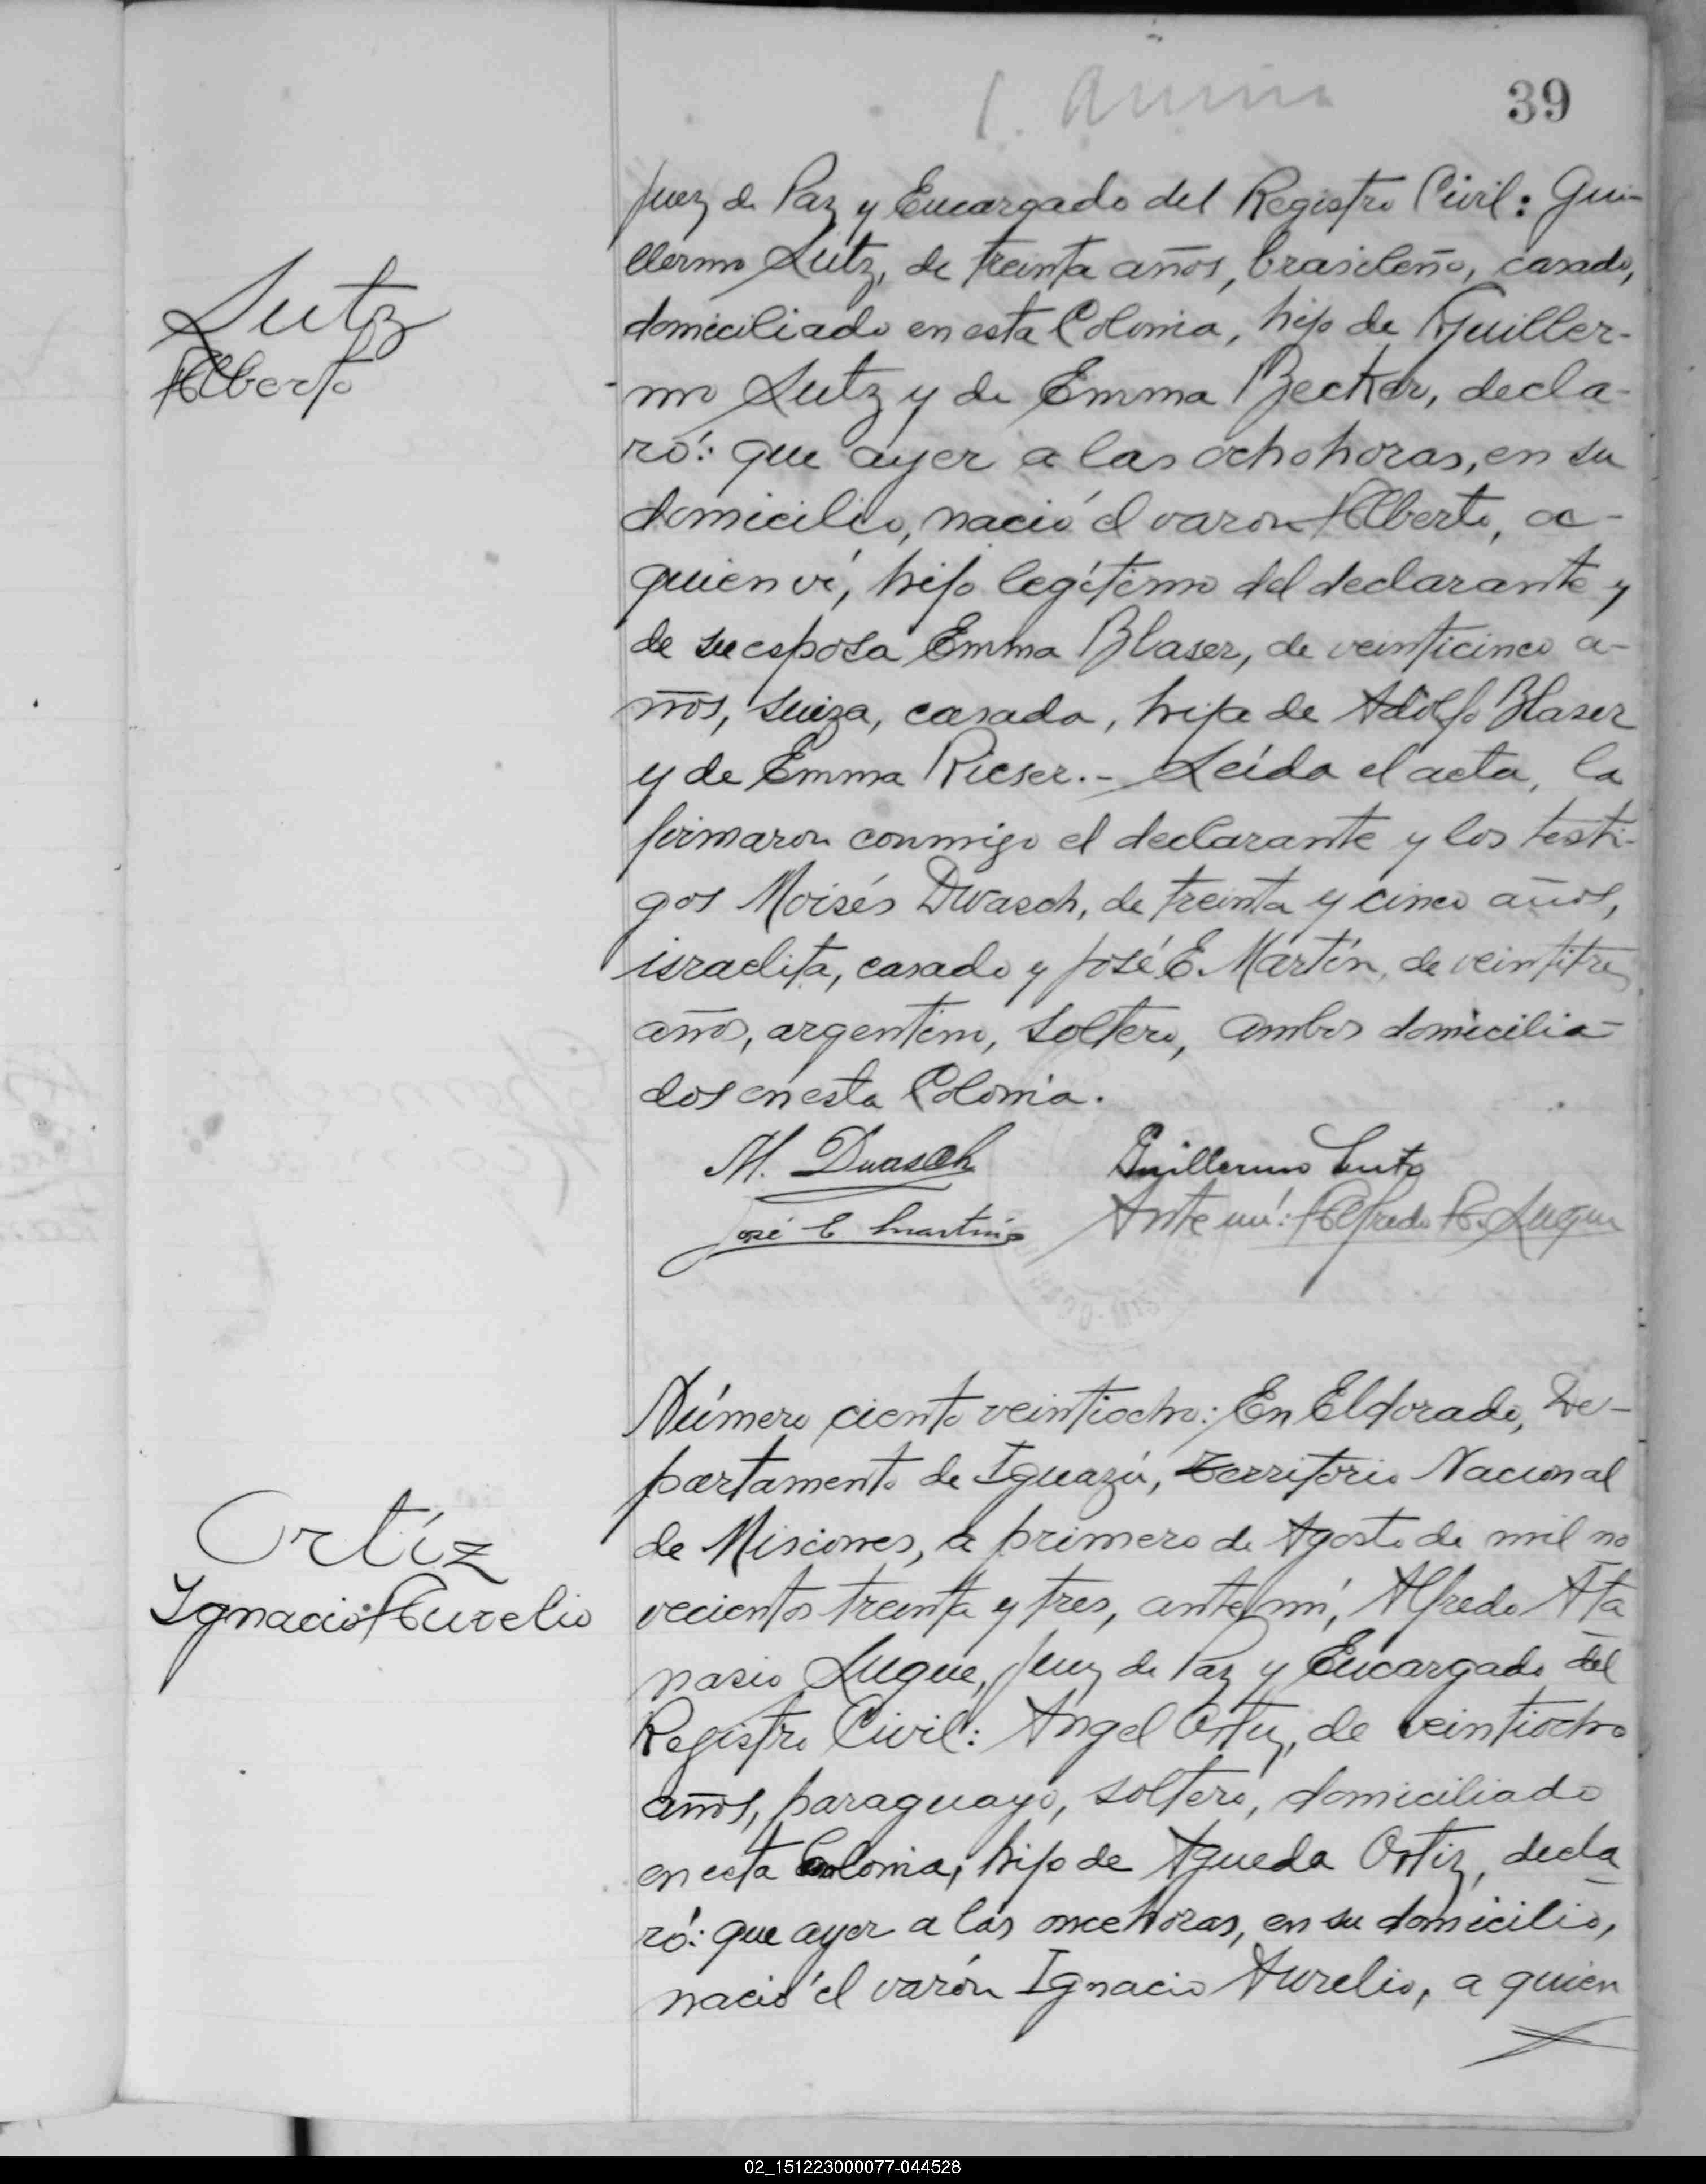 39
Juez de Paz y Encargado del Registro Civil: Gui-
llermo Lutz, de treinta años, brasileño, casado,
domiciliado en esta Colonia, hijo de Guiller-
mo Lutz y de Emma Becker, decla-
ró: que ayer a las ocho horas, en su
domicilio, nació el varon Alberto, a-
quien ví, hijo legítimo del declarante y
de su esposa Emma Blaser, de veinticinco a-
ños, suiza, casada, hija de Adolfo Blaser
y de Emma Rieser.- Leída el acta, la
firmaron conmigo el declarante y los testi-
gos Moisés Dwasch, de treinta y cinco años,
israelita, casado y José E. Martín, de veintitres
años, argentino, soltero, ambos domicilia-
dos en esta Colonia.
Lutz
Alberto
M. Dwasch Guillermo Lutz
José E Martín Ante mí: Alfredo A. Luque
Número ciento veintiocho: En Eldorado, De-
partamento de Iguazú, Territorio Nacional
de Misiones, a primero de Agosto de mil no
vecientos treinta y tres, ante mí, Alfredo Ata
nasio Luque, Juez de Paz y Encargado del
Registro Civil: Angel Ortiz, de veintiocho
años, paraguayo, soltero, domiciliado
en esta Colonia, hijo de Agueda Ortiz, decla
ró: que ayer a las once horas, en su domicilio,
nació el varón Ignacio Aurelio, a quien
Ortíz
Ignacio Aurelio
02_151223000077-044528